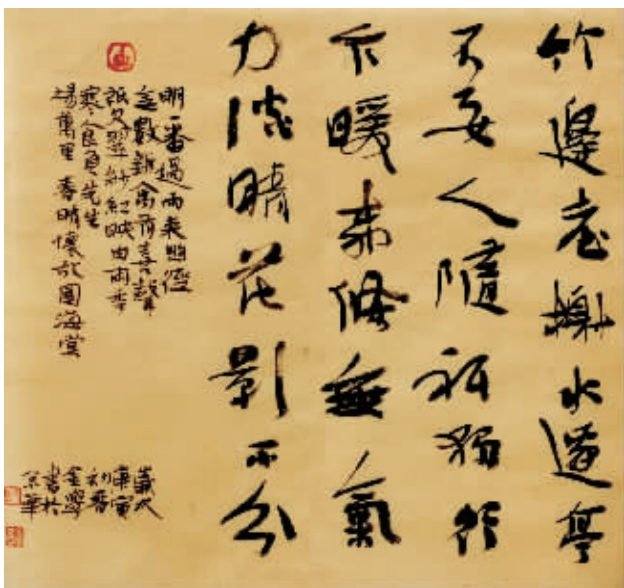 竹邊台榭水邊亭
不要人隨祇獨行
乍暖柳條無氣
力淡晴花影不分
明一番過雨來幽徑
無數新禽有喜聲
祇欠翠紗紅映肉兩年
寒食負先生
楊萬里春晴懷故園海棠
歲次
庚寅
初春
書於
京華